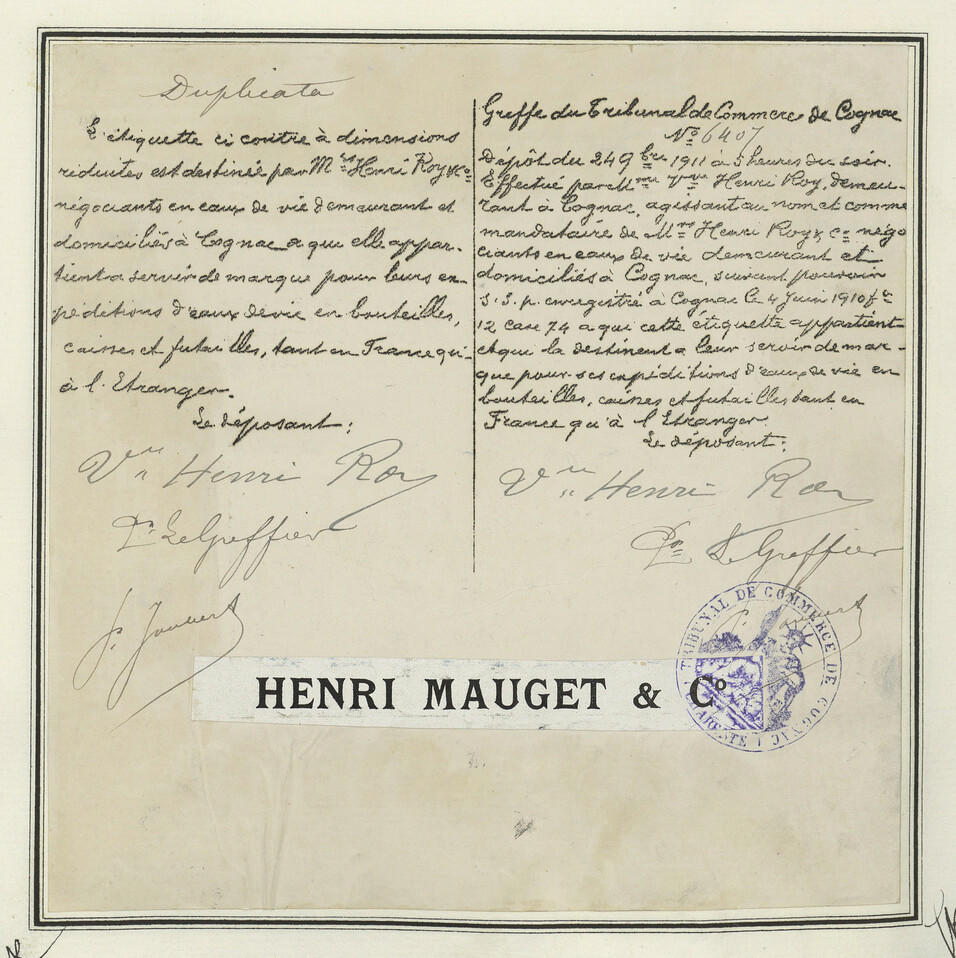 Duplicata
L'étiquette ci contre à dimensions
réduites est destinée par M^rs Henri Roy & C^o
négociants en eaux de vie demeurant et
domiciliés à Cognac a qui elle appar-
tient a servir de marque pour leurs ex-
péditions d'eaux de vie en bouteilles,
caisses et futailles, tant en France qu'-
à l'Etranger.
Le déposant:
V^ve Henri Roy
P^r Le Greffier
J. Joubert
Greffe du Tribunal de Commerce de Cognac
N^o 6407
Dépôt du 24 9^bre 1911 à 5 heures du soir.
Effectué par M^me V^ve Henri Roy, demeu-
rant à Cognac, agissant au nom et comme
mandataire de M^rs Henri Roy & C^o négo
ciants en eaux de vie demeurant et
domiciliés à Cognac, suivant pouvoir
S.S.p. enregistré à Cognac le 4 Juin 1910 f^o
12 case 74 a qui cette étiquette appartient
et qui la destinent a leur servir de mar-
que pour ses expéditions d'eaux de vie en
bouteilles, caisses et futailles tant en
France qu'à l'Etranger.
Le déposant:
V^ve Henri Roy
P^r Le Greffier
TRIBUNAL DE COMMERCE DE COGNAC
HENRI MAUGET & C^o